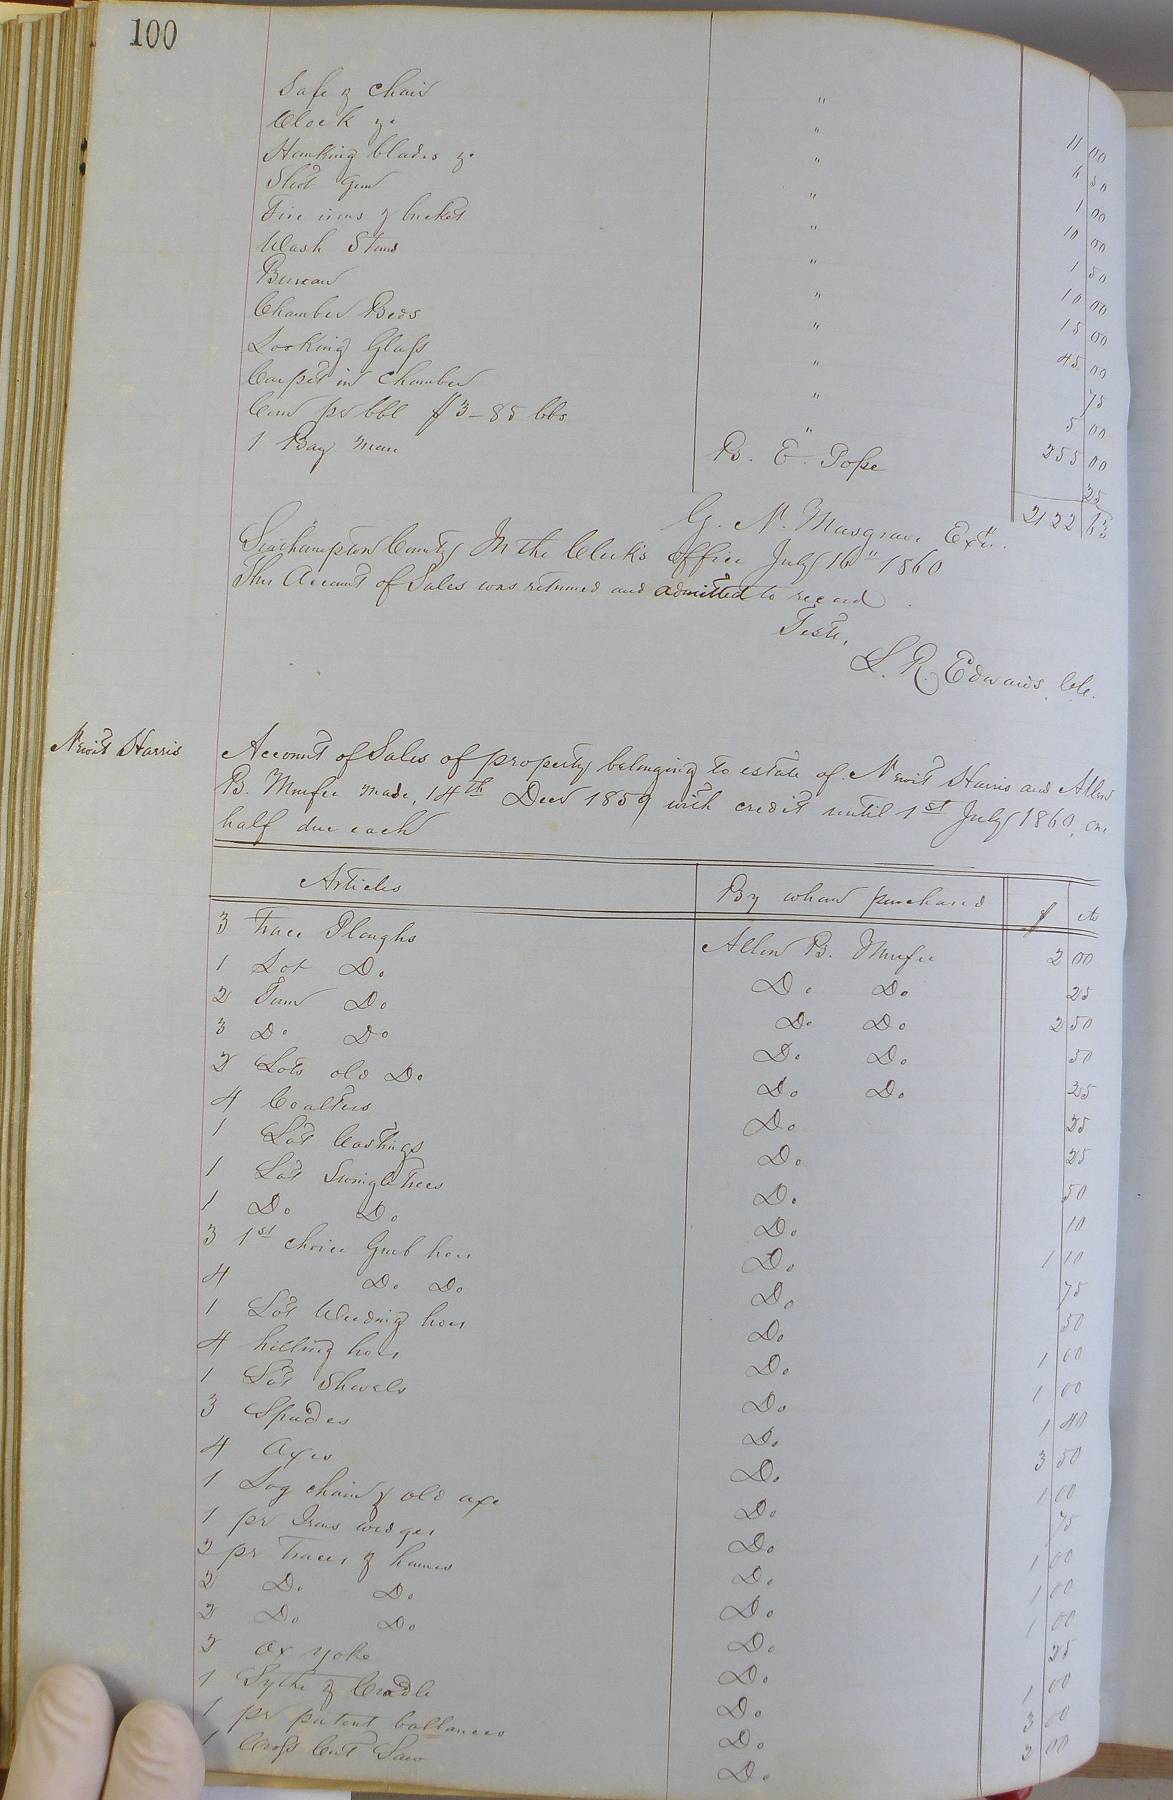 100
Safe & Chair " 11 00
Clock &c " 6 50
Hawking blades &c " 1 00
Shot Gun " 10 00
Fire irons & bucket " 1 50
Wash Stand " 10 00
Bureau " 15 00
Chamber Beds " 45 00
Looking Glass " 75
Carpet in Chamber " 5 00
Corn pr bbl $3 - 85 bbs " 255 00
1 Bay Mare B. E. Pope 25
2122 63
G. N. Musgrave Extr.
Southampton County In the Clerk's office July 16" 1860
This Account of Sales was returned and admitted to record.
Teste,
L. R. Edwards, Clk.
Newit Harris
Account of Sales of property belonging to estate of Newit Harris and Allen
B. Murfee made, 14th Decr 1859 with credit until 1st July 1860, one
half due each
Articles By whom purchased $ cts
3 Trace Ploughs Allen B. Murfee 2 00
1 Lot Do Do Do 25
2 Turn Do Do Do 2 50
3 Do Do Do Do 50
2 Lots old Do Do Do 25
4 Coalters Do 25
1 Lot Castings Do 25
1 Lot Swingletrees Do 50
1 Do Do Do 10
3 1st choice Grub hoes Do 1 10
4 Do Do Do 75
1 Lot Weeding hoes Do 50
4 hilling hoes Do 1 00
1 Lot Shovels Do 1 00
3 Spades Do 1 40
4 Axes Do 3 50
1 Log chain & old axe Do 1 00
1 pr Iron wedges Do 75
2 pr Traces & hames Do 1 00
2 Do Do Do 1 00
2 Do Do Do 1 00
2 Ox Yoke Do 25
1 Sythe & Cradle Do 1 00
1 pr patent ballances Do 3 00
1 Cross Cut Saw Do 2 00